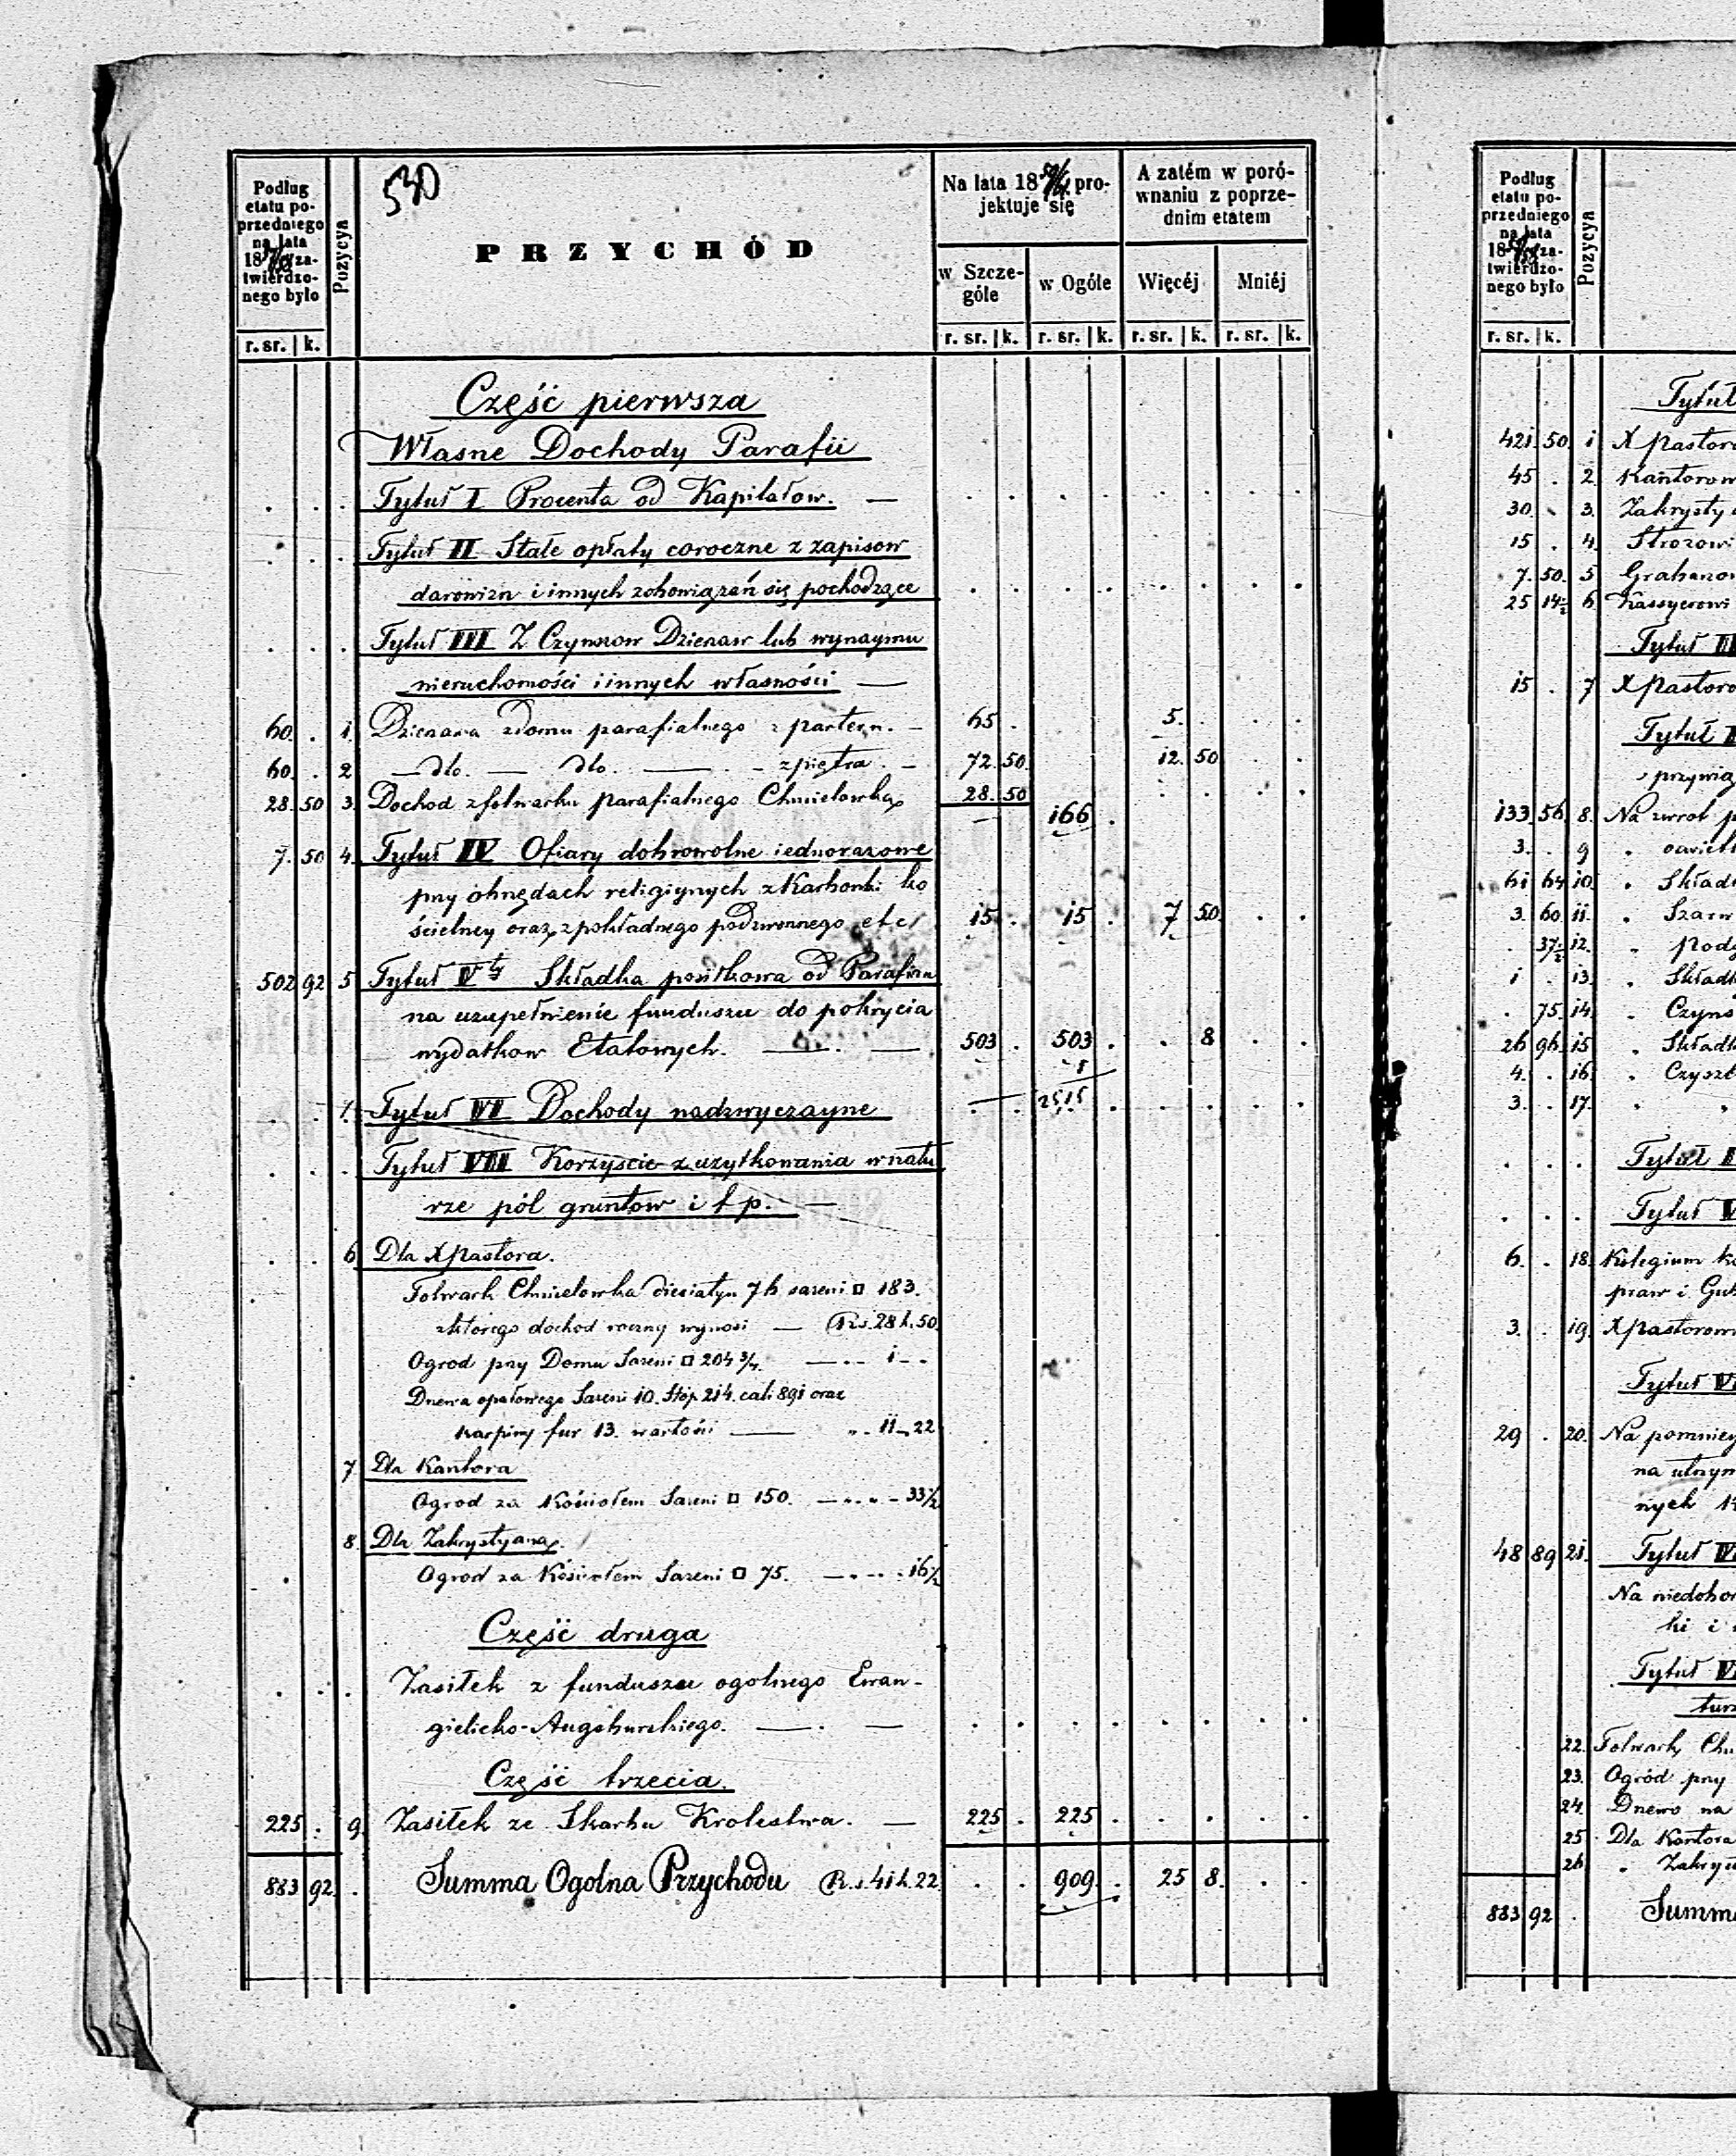 530
Podług etatu poprzedniego na lata 18 zatwierdzonego było
Pozycya
PRZYCHÓD
Na lata 18 projektuje się
A zatém w porównaniu z poprzednim etatem
w Szczególe
w Ogóle
Więcéj
Mniéj
r. sr. k. r. sr. k. r. sr. k. r. sr. k. r. sr. k.
Część pierwsza
Własne Dochody Parafii
Tytuł I Procenta od Kapitałow. —
Tytuł II Stałe opłaty coroczne z zapisow
darowizn i innych zobowiązań się pochodzące
Tytuł III Z Czynszow Dzierzaw lub wynaymu
nieruchomości i innych własności —
60 . 1. Dzierzawa z domu parafialnego z parteru. — 65 . 5 .
60 . 2 — dto. — dto. — z piętra. — 72. 50. 12. 50
28. 50 3. Dochod z folwarku parafialnego Chmielowka 28. 50
166 .
7. 50 4. Tytuł IV Ofiary dobrowolne iednorazowe
przy obrzędach religiynych z Karbonki ko
ścielney oraz z pokładnego podzwonnego etc 15 . 15 . 7 50
502 92 5 Tytuł V ty Składka posiłkowa od Parafian
na uzupełnienie funduszu do pokrycia
wydatkow Etatowych. — 503 . 503 . . 8
Tytuł VI Dochody nadzwyczayne
Tytuł VII Korzyscie z uzytkowania w natu
rze pól gruntow i t p. —
6 Dla X Pastora.
Folwark Chmielowka diesiatyn 76 sazeni □ 183.
z ktorego dochod roczny wynosi — Rs. 28 k. 50
Ogrod przy Domu Sazeni □ 204 3/4 — 1 -
Drzewa opałowego Sazeni 10. Stóp 214. cali 891 oraz
Karpiny fur 13. wartości — 11 - 22
7 Dla Kantora
Ogrod za Kościołem Sazeni □ 150. — 33 1/2
8. Dla Zakrystyana
Ogrod za Kościołem Sazeni □ 75. — 16 1/2
Część druga
Zasiłek z funduszu ogolnego Ewan-
gielicko-Augsburskiego. —
Część trzecia.
225 . 9. Zasiłek ze Skarbu Krolestwa. — 225 . 225 .
883 92 . Summa Ogolna Przychodu Rs. 41 k. 22 909 . 25 8.
Podług etatu poprzedniego na lata 18 zatwierdzonego było
Pozycya
r. sr. k.
Tytuł
421 50 1 X Pastoro
45 . 2 Kantorow
30 . 3. Zakrysty
15 . 4. Strozowi
7. 50. 5 Grabarzo
25 14 1/2 6 Kassyerowi
Tytuł II
15 . 7 X Pastoro
Tytuł
przywią
133 56 8. Na zwrot p
3. . 9
61 64 10. Skład
3. 60 11. Szarw
. 37 1/2 12.
1 . 13. Składk
. 75. 14. Czyns
26 96 15 Składk
4. . 16 Czyszc
3 . 17.
Tytuł
Tytuł V
6. . 18. Kolegium Ko
praw i Gub
3. . 19. X Pastorow
Tytuł V
29 . 20. Na pomniey
na utrzym
nych
48 89 21. Tytuł
Na niedobor
ki i
Tytuł V
turz
22. Folwark Ch
23. Ogród przy
24. Drzewo na
25 Dla Kantora
26 Zakrys
883 92 . Summa